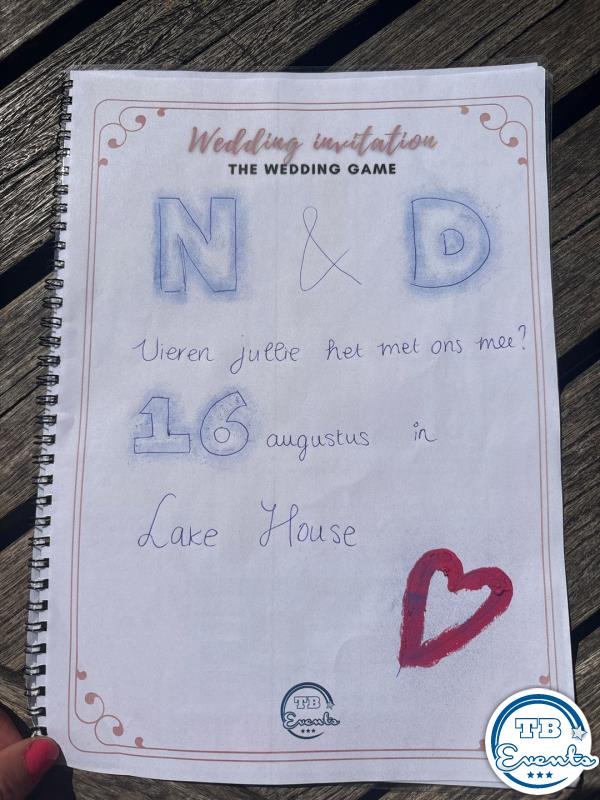 Wedding invitation
THE WEDDING GAME
N & D
Vieren jullie het met ons mee?
16 augustus in
Lake House
TB
Events
TB
Events